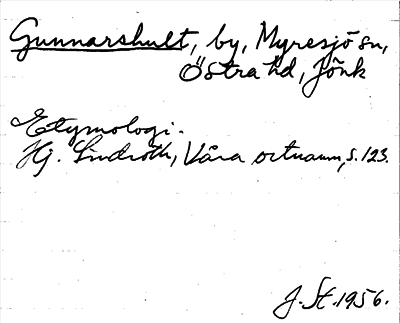 Gunnarshult, by, Myresjö sn,
Östra hd, Jönk
Etymologi.
Hj. Lindroth, Våra ortnamn, s. 123.
J. St. 1956.